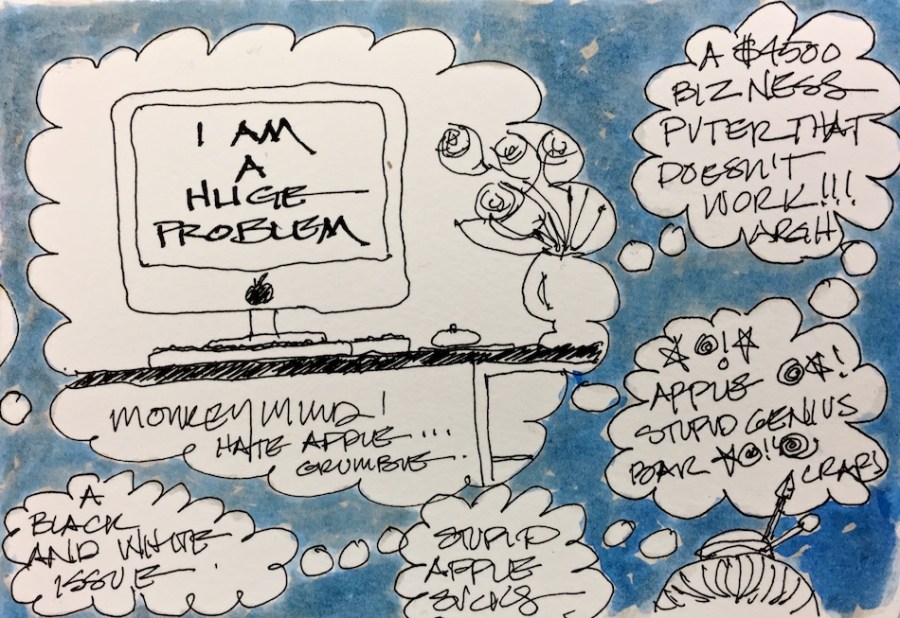 I AM
A
HUGE
PROBLEM
A $4500
BIZNESS
PUTER THAT
DOESN'T
WORK!!!
ARGH
☆@!☆
APPLE @$!
STUPID GENIUS
BAR ☆@!!@
CRAP!
MONKEY MIND!
HATE APPLE...
GRUMBLE.
A
BLACK
AND WHITE
ISSUE.
STUPID
APPLE
SUCKS